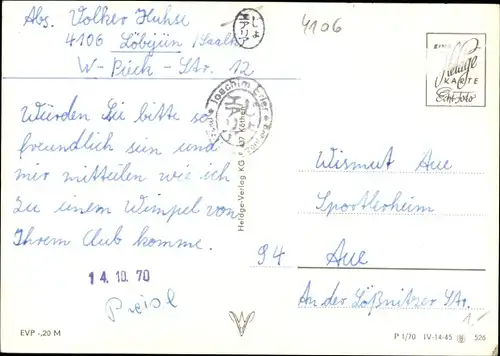 Abs. Volker Huhse
4106 Löbejün /Saalkr.
W-Pieck-Str. 12
4106
EINE
Heldge
KARTE
Echt Foto
Joachim Erler
Würden Sie bitte so
freundlich sein und
mir mitteilen wie ich
zu einem Wimpel von
Ihrem Club komme.
14. 10. 70
Preisl
Heldge-Verlag KG, 437 Köthen
Wismut Aue
Sportlerheim
94 Aue
An der Lößnitzer Str.
1,-
EVP -,20 M
P 1/70 IV-14-45 526